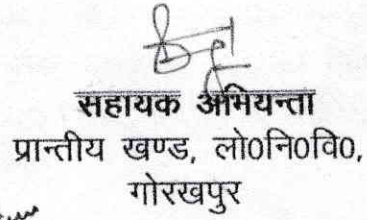 सहायक अभियन्ता
प्रान्तीय खण्ड, लो0नि0वि0,
गोरखपुर